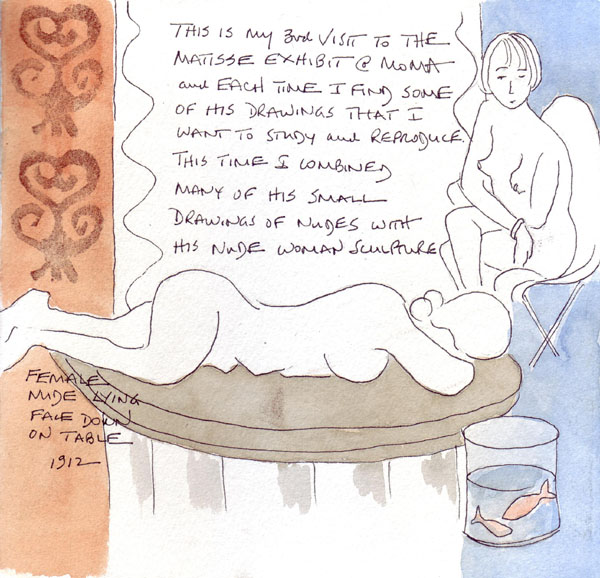 THIS IS my 3rd VISIT TO THE
MATISSE EXHIBIT @ MOMA
and EACH TIME I FIND SOME
OF HIS DRAWINGS THAT I
WANT TO STUDY and REPRODUCE.
THIS TIME I COMBINED
MANY OF HIS SMALL
DRAWINGS OF NUDES WITH
HIS NUDE WOMAN SCULPTURE
FEMALE
NUDE LYING
FACE DOWN
ON TABLE
1912